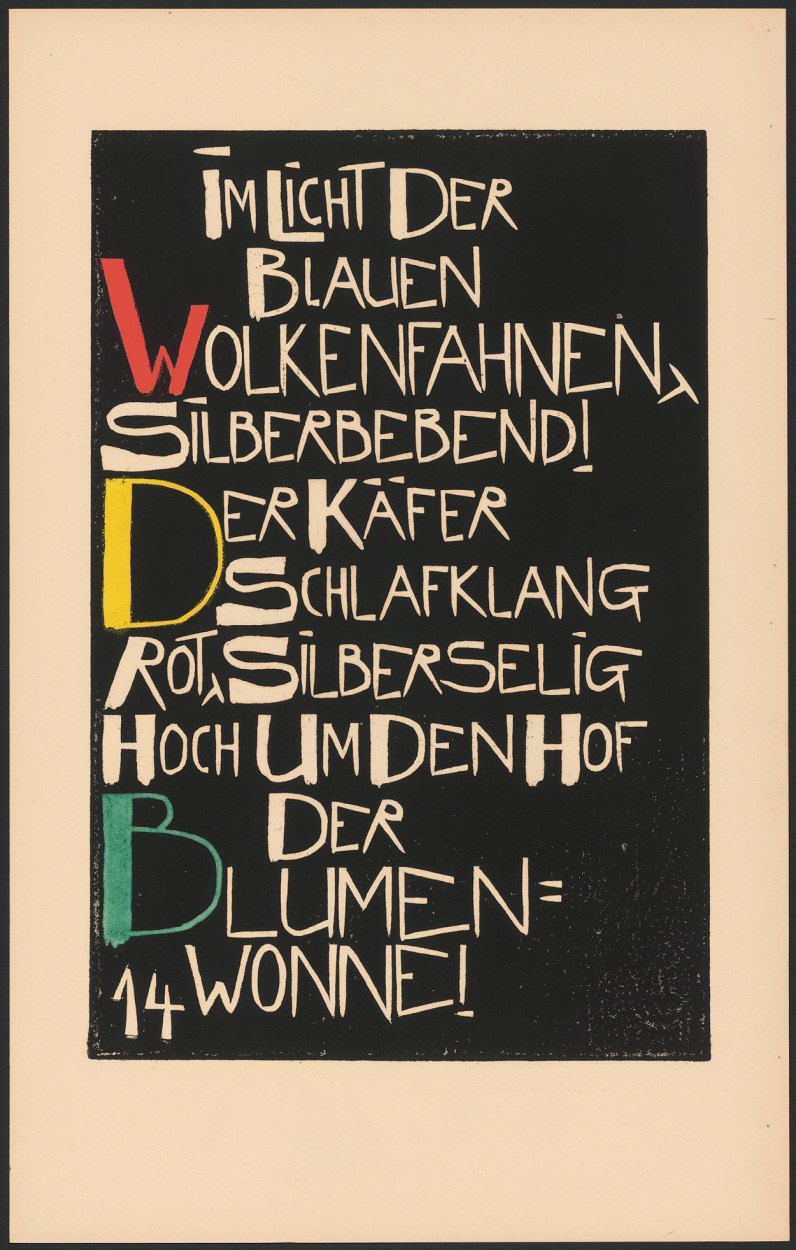 IM LICHT DER
BLAUEN
WOLKENFAHNEN,
SILBERBEBEND!
DER KÄFER
SCHLAFKLANG
ROT, SILBERSELIG
HOCH UM DEN HOF
DER
BLUMEN=
WONNE!
14